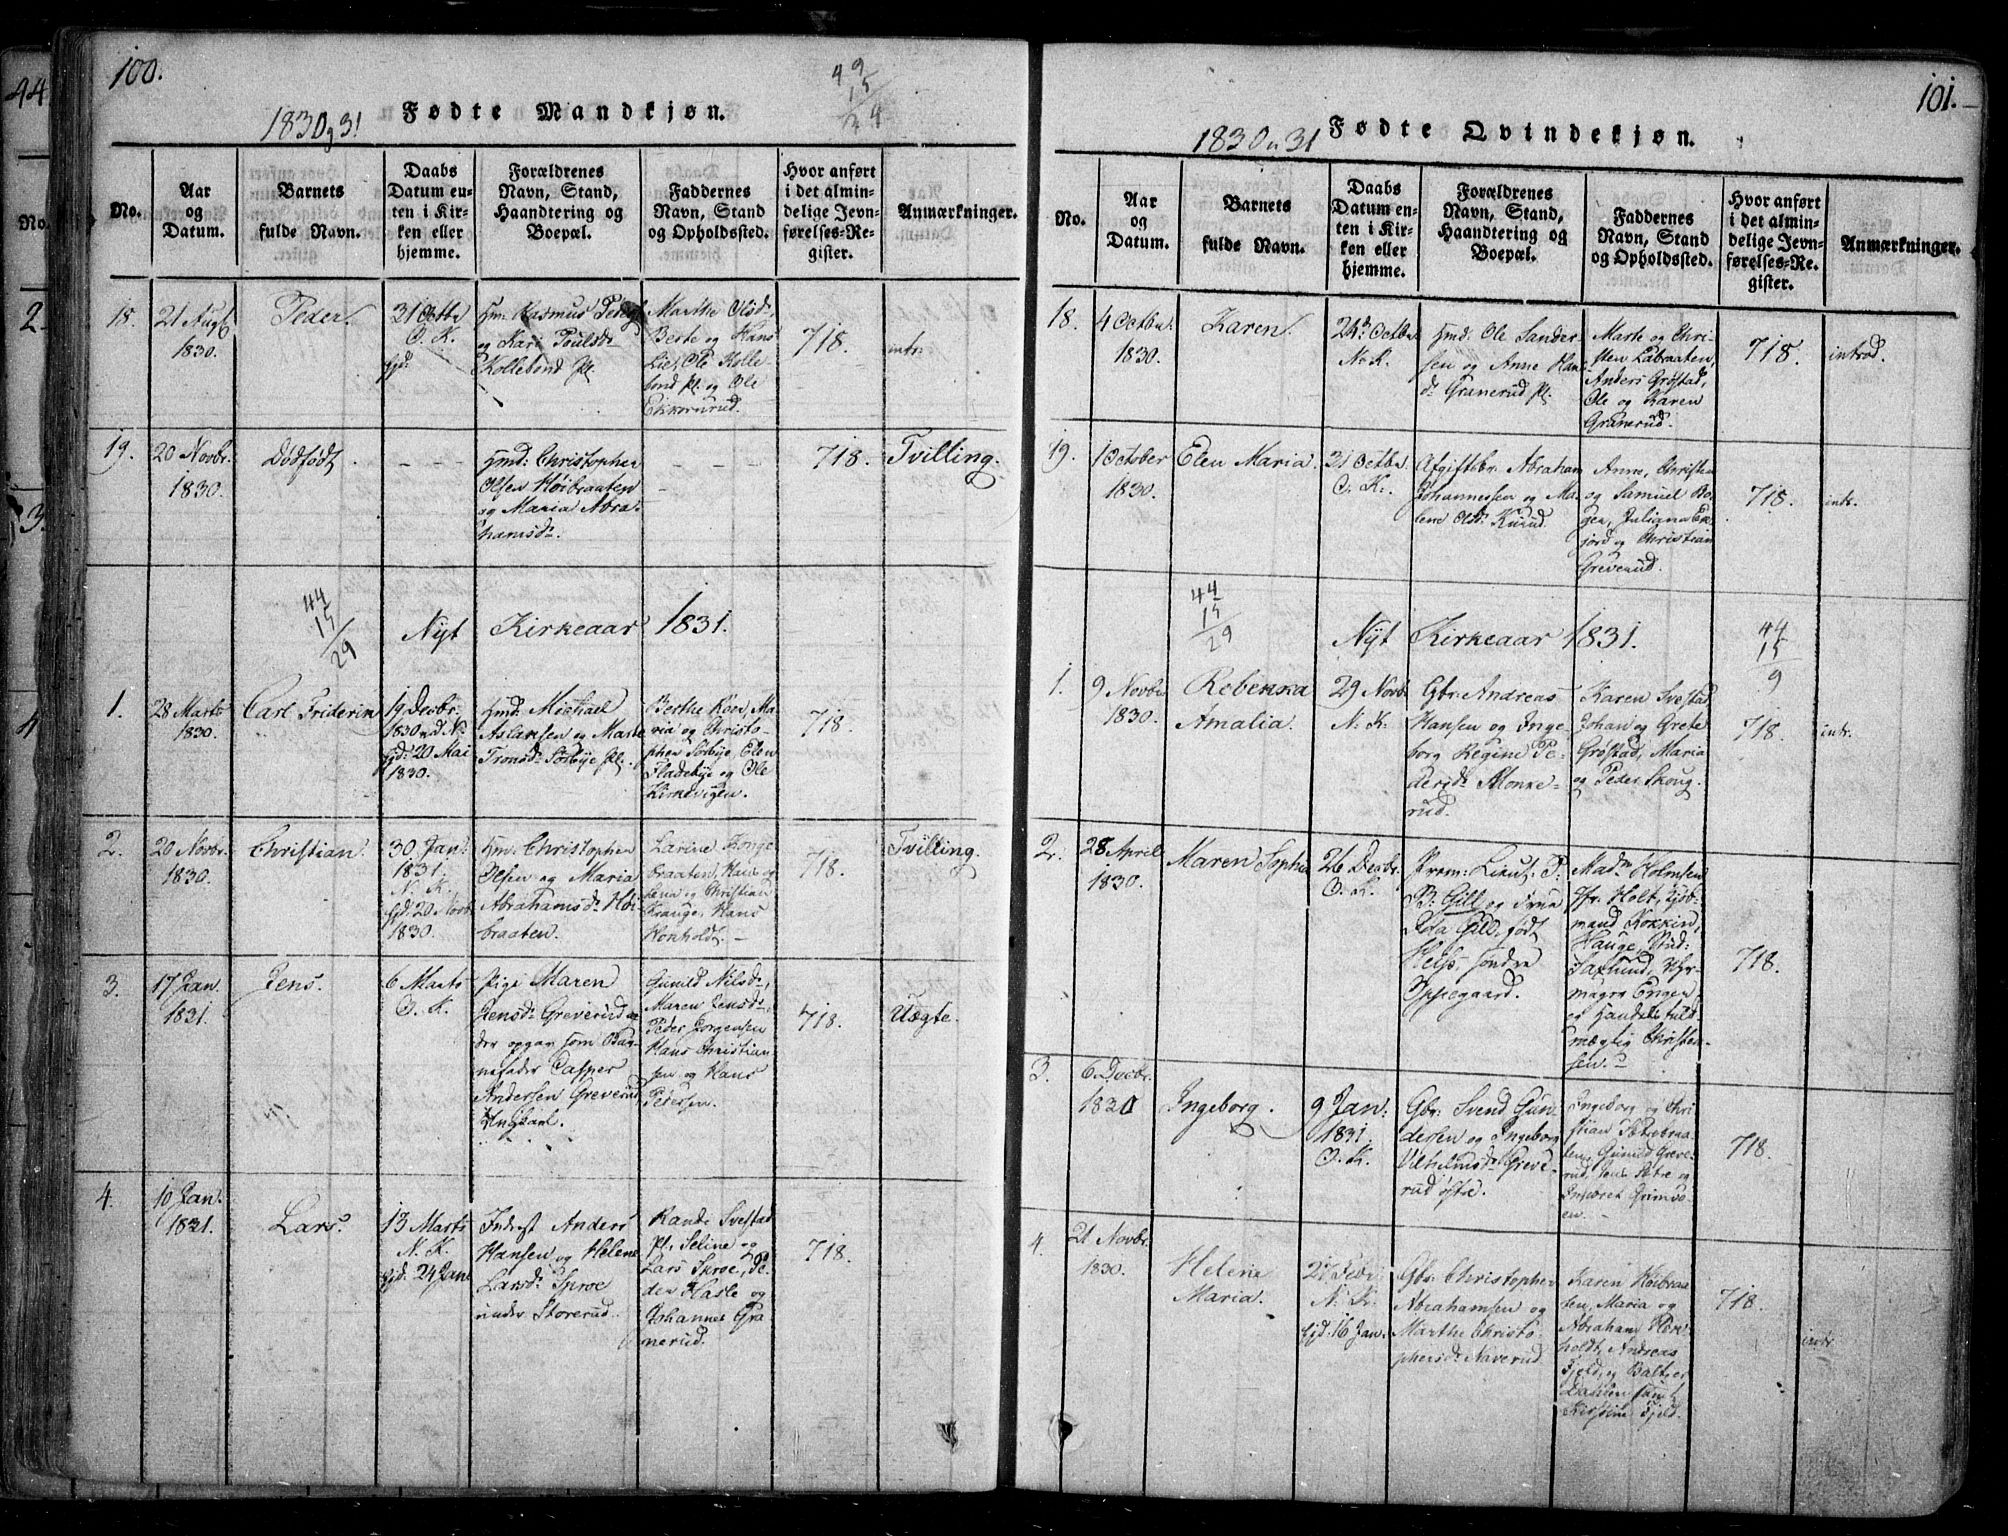 100.
49
15
34
1830 og 31
Fødte Mandkjøn.
No.
Aar
og
Datum.
Barnets
fulde Navn.
Daabs
Datum en-
ten i Kir-
ken eller
hjemme.
Forældrenes
Navn, Stand,
Haandtering og
Boepæl.
Faddernes
Navn, Stand
og Opholdssted.
Hvor anført
i det almin-
delige Jevn-
førelses-Re-
gister.
Anmærkninger.
18.
21 Aug.
1830.
Peder.
31 Octbr
O. K.
hjd:
Hm: Rasmus Peders:
og Kari Poulsd:
Kollebond pl.
Marthe Olsd:,
Berte og Hans
Lie, Ole Kolle-
bond pl. og Ole
Ekkornrud.
718.
intr.
19.
20 Novbr.
1830.
Dødfødt.
Hmd: Christopher
Olsen Høibraaten
og Maria Abra-
hamsd:
718.
Tvilling.
44
15
29
Nyt Kirkeaar 1831.
1.
28 Marts
1830.
Carl Friderin
19 Decbr.
1830 ud N.
hjd: 20 Mai
1830.
Hmd: Michael
Aslaksen og Marte
Tronsd: Sørbye pl.
Berthe Korn, Ma-
ria og Christo-
pher Sørbye, Elen
Fladebye og Ole
Kirkevigen.
718.
2.
20 Novbr.
1830.
Christian.
30 Jan:
1831.
N. K.
hjd: 20 Novb.
1830.
Hm: Christopher
Olsen og Maria
Abrahamsd: Høi-
braaten.
Larine Konge-
braaten, Hans og
Lena og Christian
Krange, Hans
Honholdt. –
718.
Tvilling.
3.
17 Jan.
1831.
Jens.
6 Marts
O. K.
Pige Maren
Jensd: Greverud
der opgav som Bar-
nefader Casper
Andersen Greverud
Ungkarl.
Gunild Nilsd:,
Maren Jensd:,
Peder Jørgensen
Hans Christian-
sen og Hans
Pedersen.
718.
Uægte.
4.
10 Jan.
1831.
Lars.
13 Marts
N. K.
hjd: 24 Jan.
Inderst Anders
Hansen og Helene
Larsd: Sproe
under Storerud.
Rande Svestad
pl., Seline og
Lars Sproe, Pe-
der Hasle og
Johannes Gra-
nerud.
718.
101.
1830 u 31
Fødte Qvindekjøn.
No.
Aar
og
Datum.
Barnets
fulde Navn.
Daabs
Datum en-
ten i Kir-
ken eller
hjemme.
Forældrenes
Navn, Stand,
Haandtering og
Boepæl.
Faddernes
Navn, Stand
og Opholdssted.
Hvor anført
i det almin-
delige Jevn-
førelses-Re-
gister.
Anmærkninger.
18.
4 Octbr
1830.
Karen.
24de Octbr
N. K.
Hmd: Ole Sander-
sen og Anne Han-
sd: Granerud pl.
Marte og Chri-
sten Labraaten,
Anders Grøstad,
Ole og Karen
Granerud.
718.
introd.
19.
1 October
1830.
Elen Maria.
31 Octbr.
O. K.
Afgiftsbr. Abraham
Johannessen og Ma-
lene Olsd: Kurud.
Anne, Christen
og Samuel Bø-
gen, Juliana Ek-
jord og Christian
Greverud.
718.
intr.
44
15
29
Nyt Kirkeaar 1831.
44
15
9
1.
9 Novbr
1830.
Rebekka
Amalia.
29 Novb.
N. K.
Gbr: Andreas
Hansen og Inge-
borg Regine Pe-
dersd: Monke-
rud.
Karen Svestad
Johan og Grete
Grøstad, Maria
og Peder Skoug.
718.
intr.
2.
28 April
1830.
Maren Sophia
26 Decbr.
O. K.
Prem: Lieut: P.
B: Gill og Frue
Ida Gill, født
Heys, søndre
Oppegaard.
Madm Holmsen
Jfr. Holt, Kjøb-
mand Kokkin,
Hauge, Stud:
Saxlund, Uhr-
mager Engen
og Handelsfuld-
mægtig Christen-
sen.
718.
3.
6 Decbr.
1830
Ingeborg.
9 Jan.
1831.
O. K.
Gbr: Svend Gun-
dersen og Ingeborg
Vilhelmsd: Greve-
rud østre.
Ingeborg og Chri-
stian Tærebraa-
ten, Gunild Greve-
rud, Jens Østre og
Ingeret Grimsø-
en.
718.
4.
21 Novbr.
1830.
Helene
Maria.
27 Febr
N. K.
hjd: 16 Jan.
Gbr: Christopher
Abrahamsen og
Marthe Christo-
phersd: Naverud.
Karen Høibraa-
ten, Maria og
Abraham Hon-
holdt, Andreas
Fjeld, og Baltzer
Dahlen samt
Kirstine Fjeld.
718.
intr.
44
No.
2
3.
4